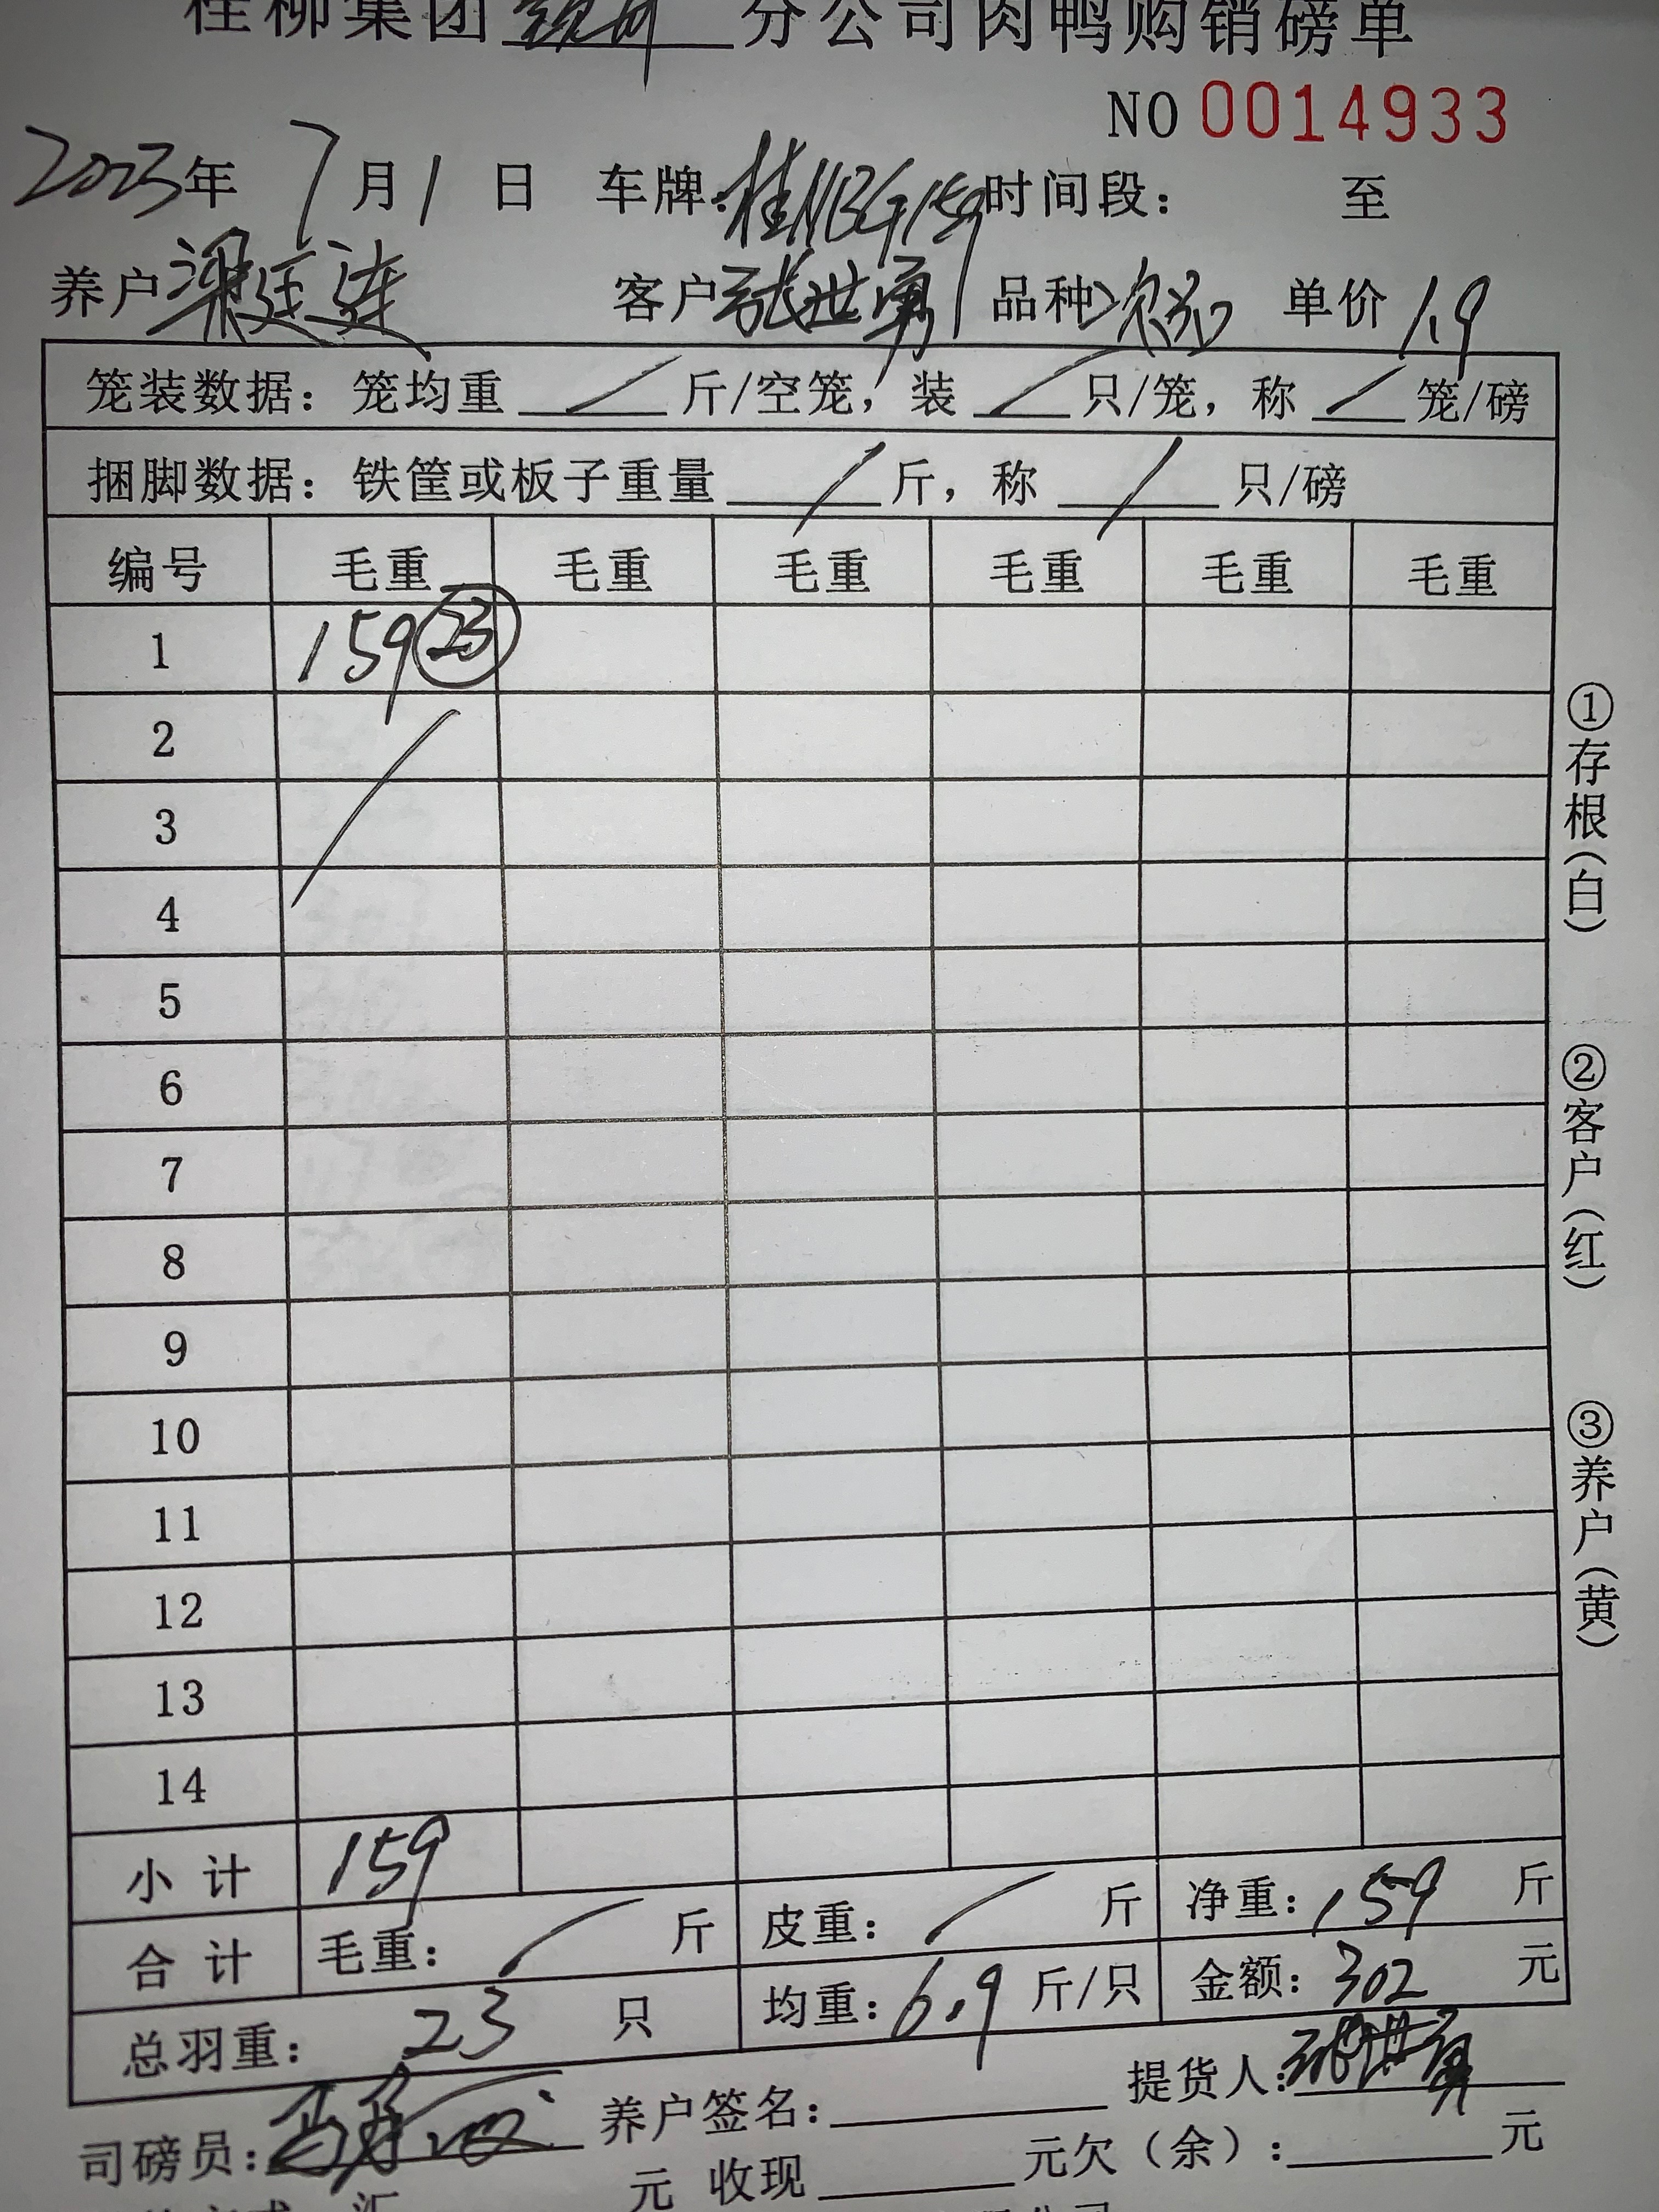 桂柳集团 分公司肉鸭购销磅单
NO 0014933
2023年 7月1日 车牌:桂NBG159 时间段: 至
养户 梁廷连 客户 张世勇 品种 单价 1.9
笼装数据: 笼均重 / 斤/空笼, 装 / 只/笼, 称 / 笼/磅
捆脚数据: 铁筐或板子重量 / 斤, 称 / 只/磅
编号 毛重 毛重 毛重 毛重 毛重 毛重
1 159 ㉓
2
3
4
5
6
7
8
9
10
11
12
13
14
小计 159
合计 毛重: / 斤 皮重: / 斤 净重: 159 斤
总羽重: 23 只 均重: 6.9 斤/只 金额: 302 元
司磅员: 养户签名: 提货人: 张世勇
元 收现 元欠(余): 元
①存根(白)
②客户(红)
③养户(黄)